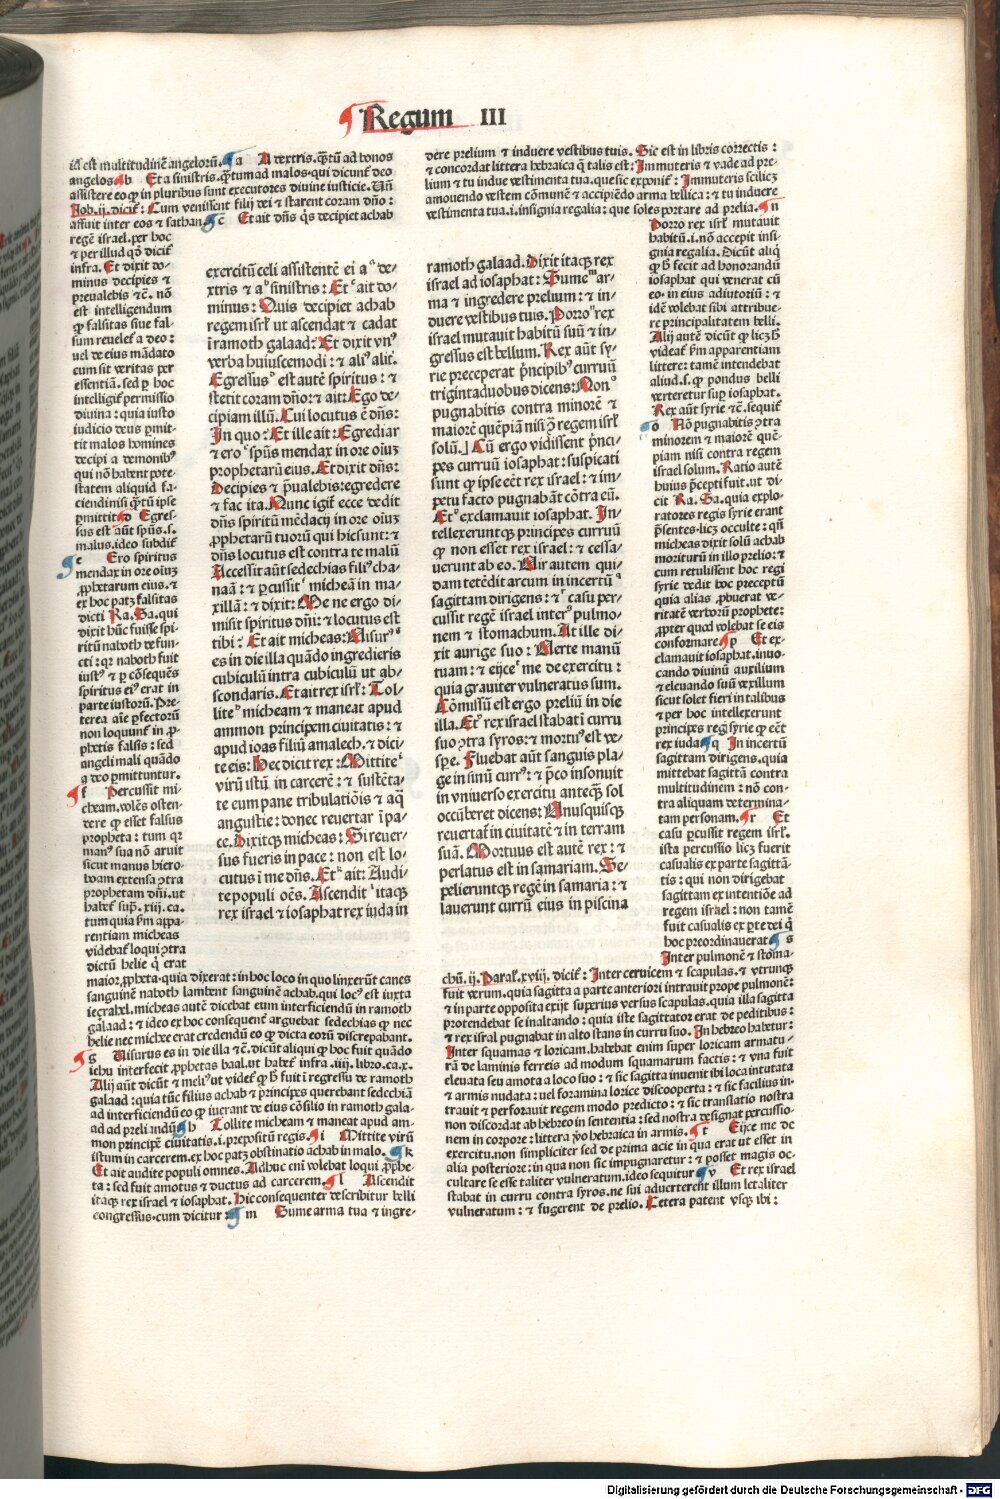 Regum III
id est multitudinē angelorū. a A dextris. q̄tū ad bonos
angelos b Et a sinistris. q̄tum ad malos. qui dicunt᷑ deo
assistere eo ꝙ in pluribus sunt executores diuine iusticie. Vñ
Job. ij. dicit᷑: Cum venissent filij dei ⁊ starent coram dño:
affuit inter eos ⁊ sathan. c Et ait dñs q̇s decipiet achab
regē israel. per hoc
⁊ per illud qd̓ dicit᷑
infra. Et dixit do-
minus decipies ⁊
preualebis ⁊c̄. nō
est intelligendum
ꝙ falsitas siue fal-
sum reuelet᷑ a deo:
vel de eius mādato
cum sit veritas per
essentiā. sed ꝑ hoc
intelligit᷑ permissio
diuina: quia iusto
iudicio deus ꝑmit-
tit malos homines
decipi a demonibꝰ
qui nō habent pote-
statem aliquid fa-
ciendi nisi q̄tū ipse
ꝑmittit d Egres-
sus est aūt spūs. s.
malus. ideo subdit᷑
e Ero spiritus
mendax in ore oīuꝫ
ꝓphetarum eius. ⁊
ex hoc patꝫ falsitas
dicti Ra. Sa. qui
dixit hūc fuisse spi-
ritū naboth defun-
cti: qꝛ naboth fuit
iustꝰ ⁊ ꝑ cōsequēs
spiritus eiꝰ erat in
parte iustorū. Pre-
terea aīe ꝑfectorū
non loquunt᷑ in ꝓ-
phetis falsis: sed
angeli mali quādo
a deo ꝑmittuntur.
f Percussit mi-
cheam. volēs osten-
dere ꝙ esset falsus
propheta: tum qꝛ
manꝰ sua nō aruit
sicut manus hiero-
boam extensa ꝯtra
prophetam dñi. vt
habet᷑ supͣ. xiij. ca.
tum quia ẜm appa
rentiam micheas
videbat᷑ loqui ꝯtra
dictū helie q̇ erat
maior ꝓpheta. quia dixerat: in hoc loco in quo linxerūt canes
sanguinē naboth lambent sanguinē achab. qui locꝰ est iuxta
iezrahel. micheas autē dicebat eum interficiendū in ramoth
galaad: ⁊ ideo ex hoc consequent᷑ arguebat sedechias ꝙ nec
helie nec michee erat credendū eo ꝙ dicta eorū discrepabant.
g Uisurus es in die illa ⁊c̄. dicūt aliqui ꝙ hoc fuit quādo
iehu interfecit ꝓphetas baal. vt habet᷑ infra. iiij. libro. ca. x.
Alij aūt dicūt ⁊ meliꝰ vt videt᷑ ꝙ h̓ fuit ī regressu de ramoth
galaad: quia tūc filius achab ⁊ principes querebant sedechiā
ad interficiendū eo ꝙ iuerant de eius cōsilio in ramoth gala-
ad ad preliandū h Tollite micheam ⁊ maneat apud am-
mon principē ciuitatis. i. prepositū regis. i Mittite virū
istum in carcerem. ex hoc patꝫ obstinatio achab in malo. k
Et ait audite populi omnes. Adhuc eni volebat loqui ꝓphe-
ta: sed fuit amotus ⁊ ductus ad carcerem. l Ascendit
itaqꝫ rex israel ⁊ iosaphat. Hic consequenter describitur belli
congressus. cum dicitur: m Sume arma tua ⁊ ingre-
exercitū celi assistentē ei a de-
xtris ⁊ a sinistris: Et ait do-
minus: Quis decipiet achab
regem isrł ut ascendat ⁊ cadat
ī ramoth galaad: Et dixit vnꝰ
verba huiuscemodi: ⁊ aliꝰ alit᷑.
Egressus est autē spiritus: ⁊
stetit coram dño: ⁊ ait: Ego de-
cipiam illū. Cui locutus ē dñs:
In quo: Et ille ait: Egrediar
⁊ ero spūs mendax in ore oīuꝫ
prophetarū eius. Et dixit dñs:
Decipies ⁊ p̄ualebis: egredere
⁊ fac ita. Nunc igit᷑ ecce dedit
dñs spiritū mēdacij in ore oīuꝫ
ꝓphetarū tuorū qui hic sunt: ⁊
dñs locutus est contra te malū
Accessit aūt sedechias filiꝰ cha-
naā: ⁊ ꝑcussit micheā in ma-
xillā: ⁊ dixit: Me ne ergo di-
misit spiritus dñi: ⁊ locutus est
tibi: Et ait micheas: Uisurꝰ
es in die illa quādo ingredieris
cubiculū intra cubiculū ut ab-
scondaris. Et ait rex isrł: Tol-
lite micheam ⁊ maneat apud
ammon principem ciuitatis: ⁊
apud ioas filiū amalech. ⁊ dici-
te eis: Hec dicit rex: Mittite
virū istū in carcerē: ⁊ sustēta-
te eum pane tribulatiōis ⁊ aq̄
angustie: donec reuertar ī pa-
ce. Dixitqꝫ micheas: Si reuer-
sus fueris in pace: non est lo-
cutus ī me dñs. Et ait: Audi-
te populi oēs. Ascendit itaqꝫ
rex israel ⁊ iosaphat rex iuda in
ramoth galaad. Dixit itaqꝫ rex
israel ad iosaphat: Sume ar-
ma ⁊ ingredere prelium: ⁊ in-
duere vestibus tuis. Porro rex
israel mutauit habitū suū ⁊ in-
gressus est bellum. Rex aūt sy-
rie preceperat p̄ncipibꝰ curruū
triginta duobus dicens: Non
pugnabitis contra minorē ⁊
maiorē quēpiā nisi ꝯ̄ regem isrł
solū. Cū ergo vidissent p̄nci-
pes curruū iosaphat: suspicati
sunt ꝙ ipse eēt rex israel: ⁊ im-
petu facto pugnabāt cōtra eū.
Et exclamauit iosaphat. In-
tellexeruntqꝫ principes curruū
ꝙ non esset rex israel: ⁊ cessa-
uerunt ab eo. Uir autem qui-
dam tetēdit arcum in incertū
sagittam dirigens: ⁊ casu per-
cussit regē israel inter pulmo-
nem ⁊ stomachum. At ille di-
xit aurige suo: Uerte manū
tuam: ⁊ eijce me de exercitu:
quia grauiter vulneratus sum.
Cōmissū est ergo preliū in die
illa. Et rex israel stabat ī curru
suo ꝯtra syros: ⁊ mortuꝰ est ve-
spe. Fluebat aūt sanguis pla-
ge in sinū currꝰ: ⁊ p̄co insonuit
in vniuerso exercitu anteqꝫ sol
occūberet dicens: Unusquisqꝫ
reuertat᷑ in ciuitatē ⁊ in terram
suā. Mortuus est autē rex: ⁊
perlatus est in samariam. Se-
pelieruntqꝫ regē in samaria: ⁊
lauerunt currū eius in piscina
dere prelium ⁊ induere vestibus tuis. Sic est in libris correctis:
⁊ concordat littera hebraica q̄ talis est: Immuteris ⁊ vade ad pre-
lium ⁊ tu indue vestimenta tua. que sic exponit᷑: Immuteris scilicꝫ
amouendo vestem cōmunē ⁊ accipiēdo arma bellica: ⁊ tu induere
vestimenta tua. i. insignia regalia: que soles portare ad prelia. n
Porro rex isrł mutauit
habitū. i. nō accepit insi-
gnia regalia. Dicūt aliq̇
ꝙ h̓ fecit ad honorandū
iosaphat qui venerat cū
eo. in eius adiutoriū: ⁊
idē volebat sibi attribue-
re principalitatem belli.
Alij autē dicūt ꝙ licꝫ h̓
videat᷑ ẜm apparentiam
littere: tamē intendebat
aliud. s. ꝙ pondus belli
verteretur sup̄ iosaphat.
Rex aūt syrie ⁊c̄. sequit᷑
o Nō pugnabitis ꝯtra
minorem ⁊ maiorē quē-
piam nisi contra regem
israel solum. Ratio autē
huius p̄cepti fuit. vt di-
cit Ra. Sa. quia explo-
ratores regis syrie erant
p̄sentes. licꝫ occulte: qñ
micheas dixit solū achab
moriturū in illo prelio: ⁊
cum retulissent hoc regi
syrie dedit hoc preceptū
quia alias ꝓbauerat ve-
ritatē verborū prophete:
ꝓpter quod volebat se eis
conformare p Et ex-
clamauit iosaphat. inuo-
cando diuinū auxilium
⁊ eleuando suū vexillum
sicut solet fieri in talibus
⁊ per hoc intellexerunt
principes regꝭ syrie ꝙ eēt
rex iuda q In incertū
sagittam dirigens. quia
mittebat sagittā contra
multitudinem: nō con-
tra aliquam determina-
tam personam. r Et
casu ꝑcussit regem isrł.
ista percussio licꝫ fuerit
casualis ex parte sagittā-
tis: qui non dirigebat
sagittam ex intentiōe ad
regem israel: non tamē
fuit casualis ex ꝑte dei q̇
hoc preordinauerat s
Inter pulmonē ⁊ stoma-
chū. ij. Paraƚ. xviij. dicit᷑: Inter ceruicem ⁊ scapulas. ⁊ vtrunqꝫ
fuit verum. quia sagitta a parte anteriori intrauit prope pulmonē:
⁊ in parte opposita exijt superius versus scapulas. quia illa sagitta
protendebat se in altando: quia iste sagittator erat de peditibus:
⁊ rex isrł pugnabat in alto stans in curru suo. In hebreo habetur:
Inter squamas ⁊ loricam. habebat enim super loricam armatu-
rā de laminis ferreis ad modum squamarum factis: ⁊ vna fuit
eleuata seu amota a loco suo: ⁊ sic sagitta inuenit ibi loca intutata
⁊ armis nudata: vel foramina lorice discooperta: ⁊ sic facilius in-
trauit ⁊ perforauit regem modo predicto: ⁊ sic translatio nostra
non discordat ab hebreo in sententia: sed nostra designat percussio-
nem in corpore: littera v̓o hebraica in armis. t Eijce me de
exercitu. non simpliciter sed de prima acie in qua erat vt esset in
alia posteriore: in qua non sic impugnaretur: ⁊ posset magis oc-
cultare se esse taliter vulneratum. ideo sequitur v Et rex israel
stabat in curru contra syros. ne sui aduerterent illum letaliter
vulneratum: ⁊ fugerent de prelio. Cetera patent vsqꝫ ibi:
Digitalisierung gefördert durch die Deutsche Forschungsgemeinschaft - DFG